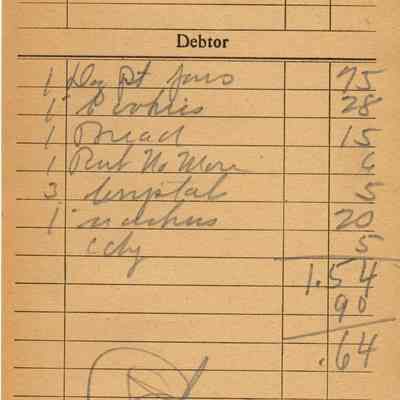 Debtor
1 Dz Pt Jars 75
1 Cookies 28
1 Bread 15
1 Rub No More 6
3 Crystal 5
1 matches 20
cdy 5
1.54
90
.64